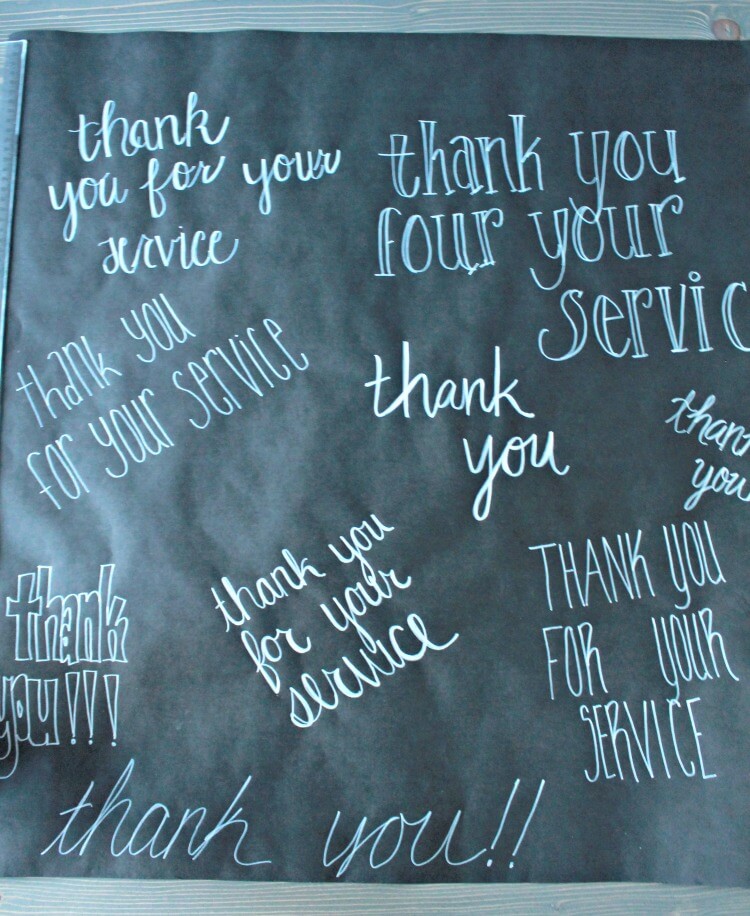 thank
you for your
service
thank you
four your
servic
thank you
for your service
thank
you
than
you
thank
you!!!
thank you
for your
service
THANK YOU
FOR YOUR
SERVICE
thank you!!